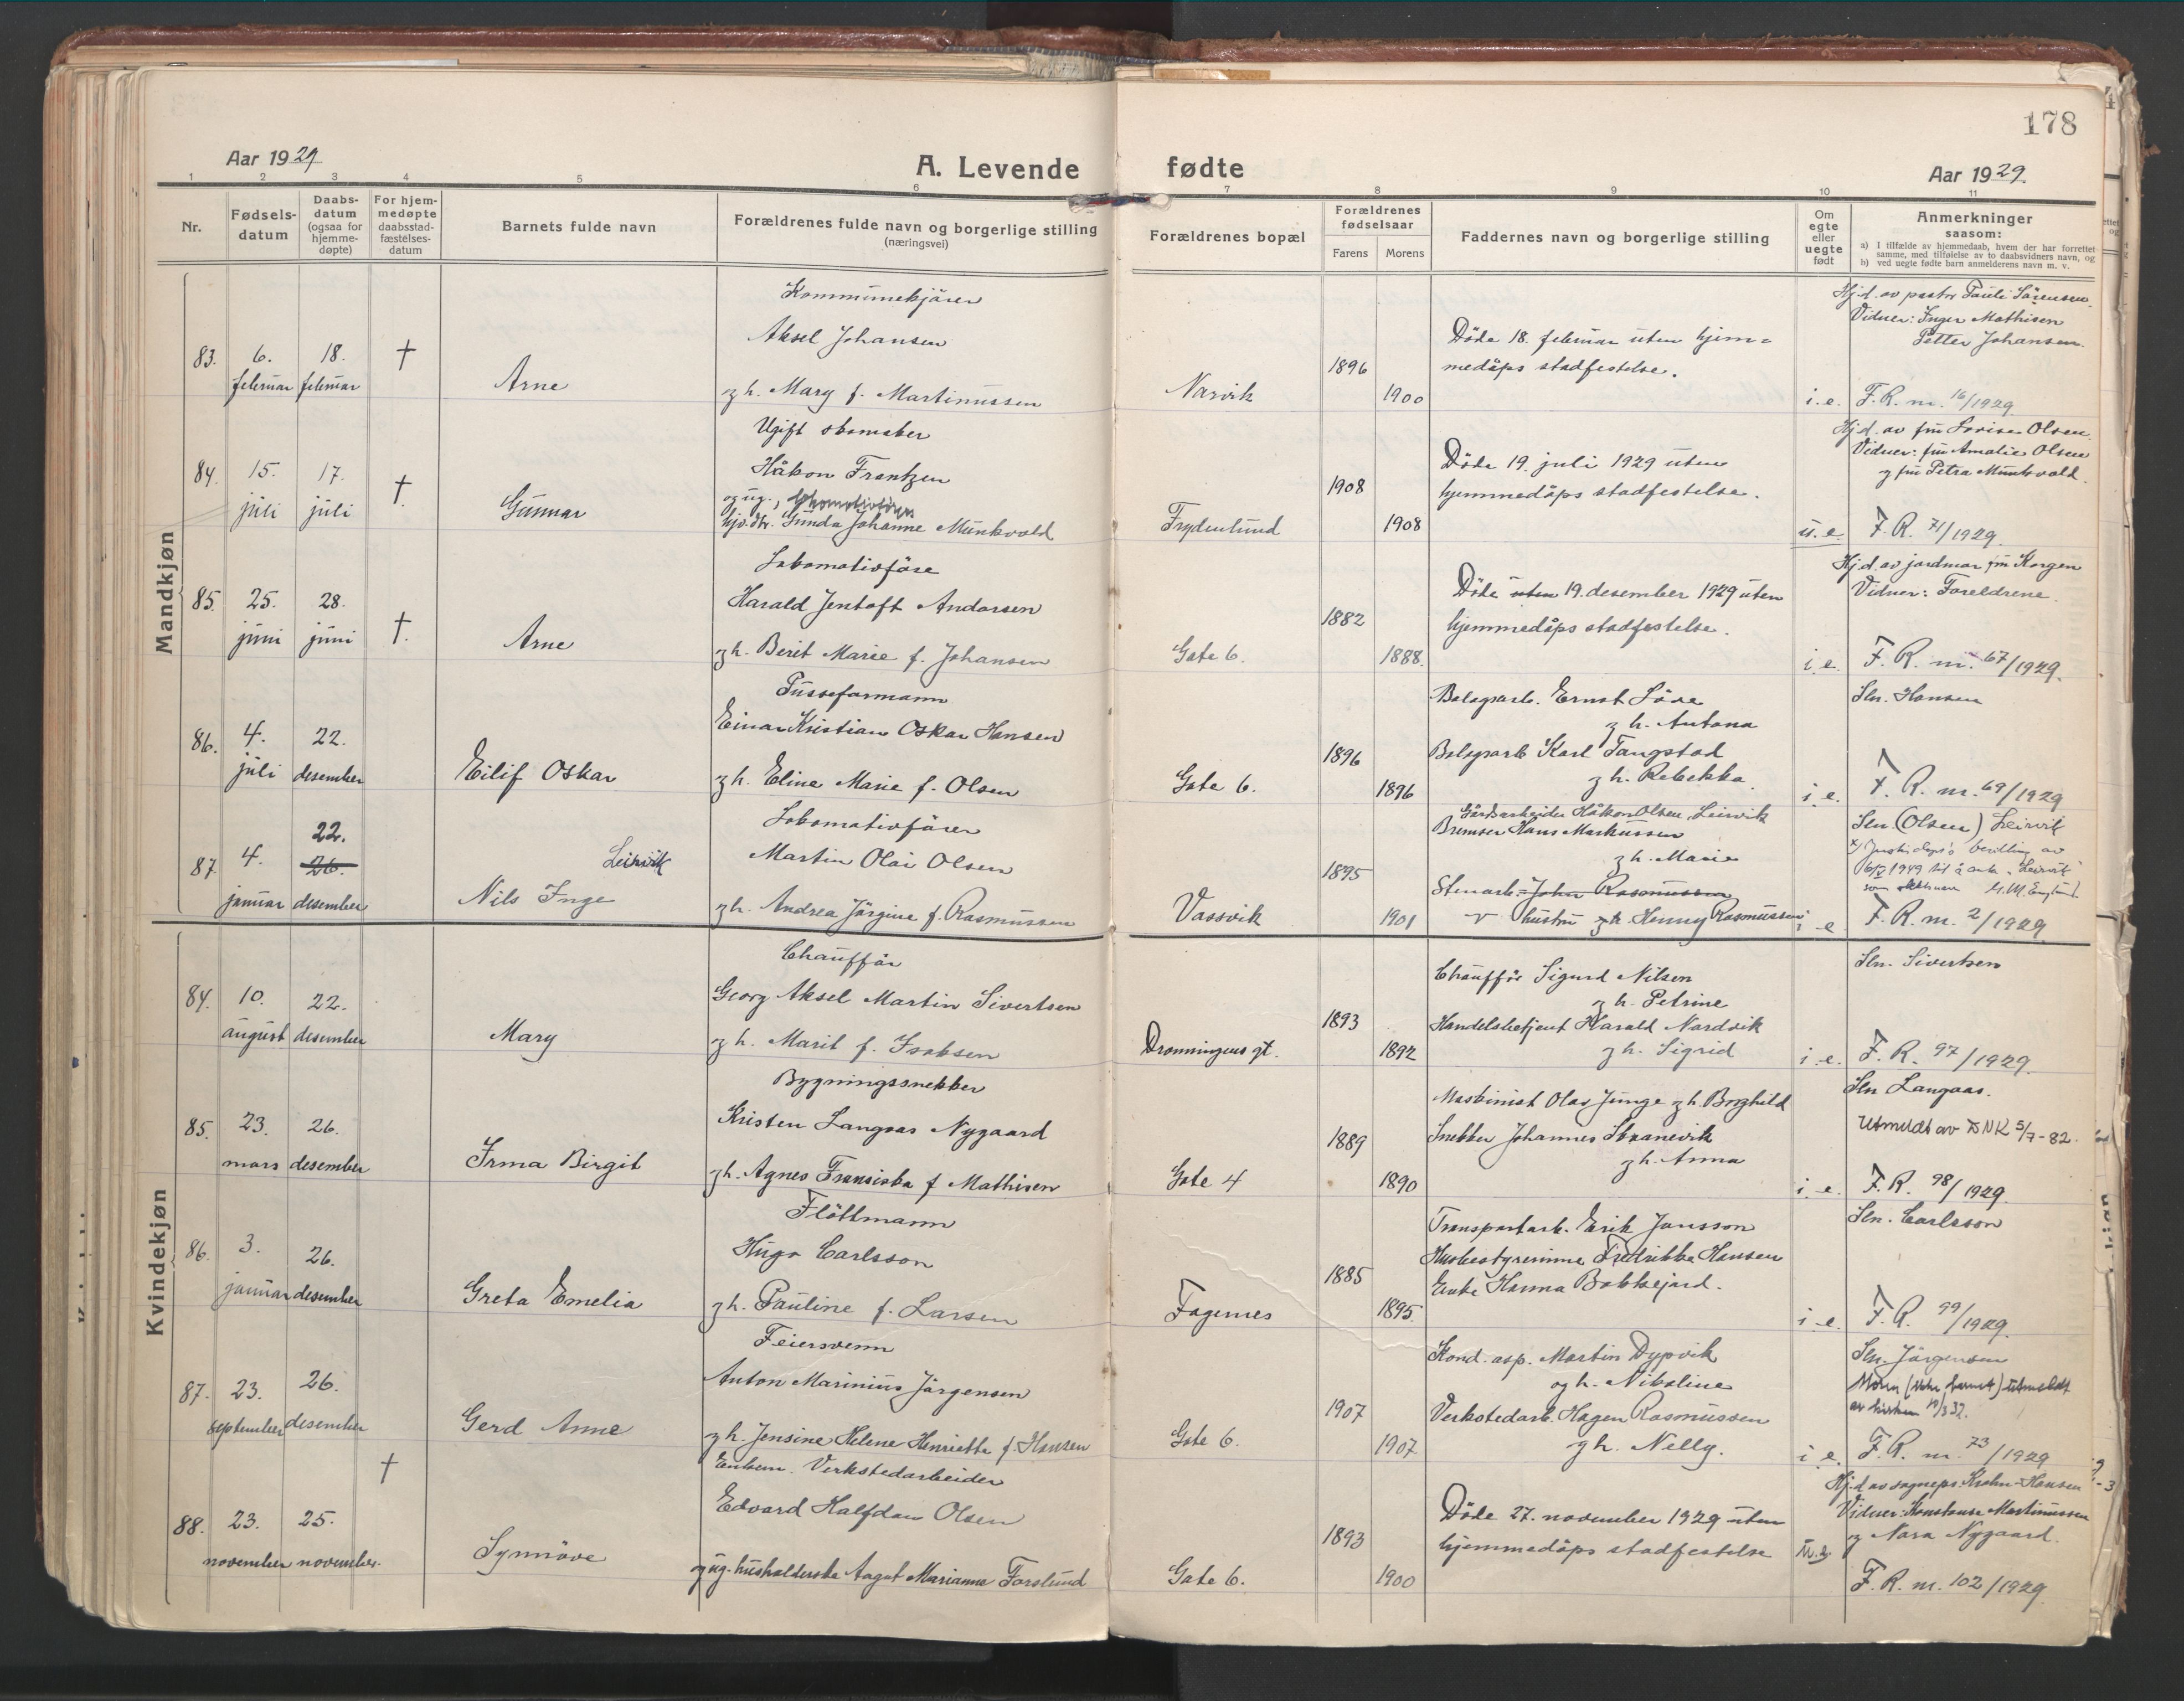 178
Aar 1929
A. Levende fødte
Aar 1929.
1 2 3 4 5 6 7 8 9 10 11
Nr.
Fødsels-
datum
Daabs-
datum
(ogsaa for
hjemme-
døpte)
For hjem-
medøpte
daabsstad-
fæstelses-
datum
Barnets fulde navn
Forældrenes fulde navn og borgerlige stilling
(næringsvei)
Forældrenes bopæl
Forældrenes
fødselsaar
Farens Morens
Faddernes navn og borgerlige stilling
Om
egte
eller
uegte
født
Anmerkninger
saasom:
a) I tilfælde av hjemmedaab, hvem der har forrettet
samme, med tilføielse av to daabsvidners navn, og
b) ved uegte fødte barn anmelderens navn m. v.
Mandkjøn
83. 6. februar
18. februar
†
Arne
Kommunekjörer
Aksel Johansen
og h. Mary f. Martinussen
Narvik
1896
1900
Döde 18. februar uten hjem=
medåps stadfestelse.
i. e.
Hj.d. av pastor Pauli Sörensen.
Vidner: Inger Mathisen
Petter Johansen.
F. R. nr. 16/1929
84. 15. juli
17. juli
†.
Gunnar
Ugift skomaker
Håkon Frantzen
og ug.,
Gunda Johanne Munkvold
Frydenlund
1908
1908
Döde 19. juli 1929 uten
hjemmedåps stadfestelse.
u. e.
Hj.d. av fru Lovise Olsen.
Vidner: fru Amalie Olsen
og fru Petra Munkvold.
F. R. 71/1929.
85. 25. juni
28. juni
†.
Arne
Lokomotivförer
Harald Jentoft Andorsen
og h. Berit Marie f. Johansen
Gate 6.
1882
1888.
Döde uten 19. desember 1929 uten
hjemmedåps stadfestelse.
i. e.
Hj.d. av jordmor fru Korgen
Vidner: Foreldrene.
F. R. nr. 67/1929.
86. 4. juli
22. desember
Eilif Oskar
Pusseformann
Einar Kristian Oskar Hansen
og h. Eline Marie f. Olsen
Gate 6.
1896
1896
Bolagsarb. Ernst
og h. Antona
Bolagsarb. Karl Tangstad
og h. Rebekka.
i. e.
Sln. Hansen
F. R. nr. 69/1929
87. 4. januar
22.
26. desember
Leirvik
Nils Inge
Lokomotivförer
Martin Olai Olsen
og h. Andrea Jörgine f. Rasmussen
Vassvik
1895
1901
Gårdsarbeider Håkon Olsen, Leirvik
Bremser Hans Markussen
og h. Marie
Stenarb. John Rasmussen
hustru og h. Henny Rasmussen
i. e.
Sln. (Olsen) Leirvik
bevilling av
1949 til å anta "Leirvik"
som
F. R. nr. 2/1929
Kvindekjøn
84. 10. august
22. desember
Mary
Chaufför
Georg Aksel Martin Sivertsen
og h. Marit f. Isaksen
Dronningens gt.
1893
1892
Chaufför Sigurd Nilsen
og h. Petrine
Handelsbetjent Harald Nordvik
og h. Sigrid
i. e.
Sln. Sivertsen
F. R. 97/1929
85. 23. mars
26. desember
Irma Birgit
Bygningssnekker
Kristen Langaas Nygaard
og h. Agnes Fransiska f. Mathisen
Gate 4
1889
1890
Maskinist Olav Junge og h. Borghild
Snekker Johannes Skranevik
og h. Anna
i. e.
Sln Langaas.
Utmeldt av DNK 5/7-82.
F. R. 98/1929.
86. 3. januar
26. desember
Greta Emelia
Flöttmann
Hugo Carlsson
og h. Pauline f. Larsen
Fagernes
1885
1895.
Transportarb. Erik Jansson
Husbestyrerinne Fredrikke Hansen
Enke Hanna Bakkejord.
i. e.
Sln. Carlsson
F. R. 99/1929.
87. 23. september
26. desember
Gerd Anne
Feiersvenn
Anton Marinius Jörgensen
og h. Jensine Helene Henriette f. Hansen
Gate 6.
1907
1907
Kond. asp. Martin Dypvik
og h. Nikoline
Verkstedarb. Hagen Rasmussen
og h. Nelly.
i. e.
Sln. Jörgensen
Moren (ikke barnet) utmeldt
av kirken
F. R. nr. 73/1929
88. 23. november
25. november.
†
Synnöve
Enkem. Verkstedarbeider
Edvard Halfdan Olsen
og ug. husholderske Aagot Marianne Forslund
Gate 6.
1893
1900
Döde 27. november 1929 uten
hjemmedåps stadfestelse
u. e.
Hj.d av sognepr. Krohn-Hansen
Vidner: Konstanse Martinussen
og Nora Nygaard.
F. R. nr. 102/1929.